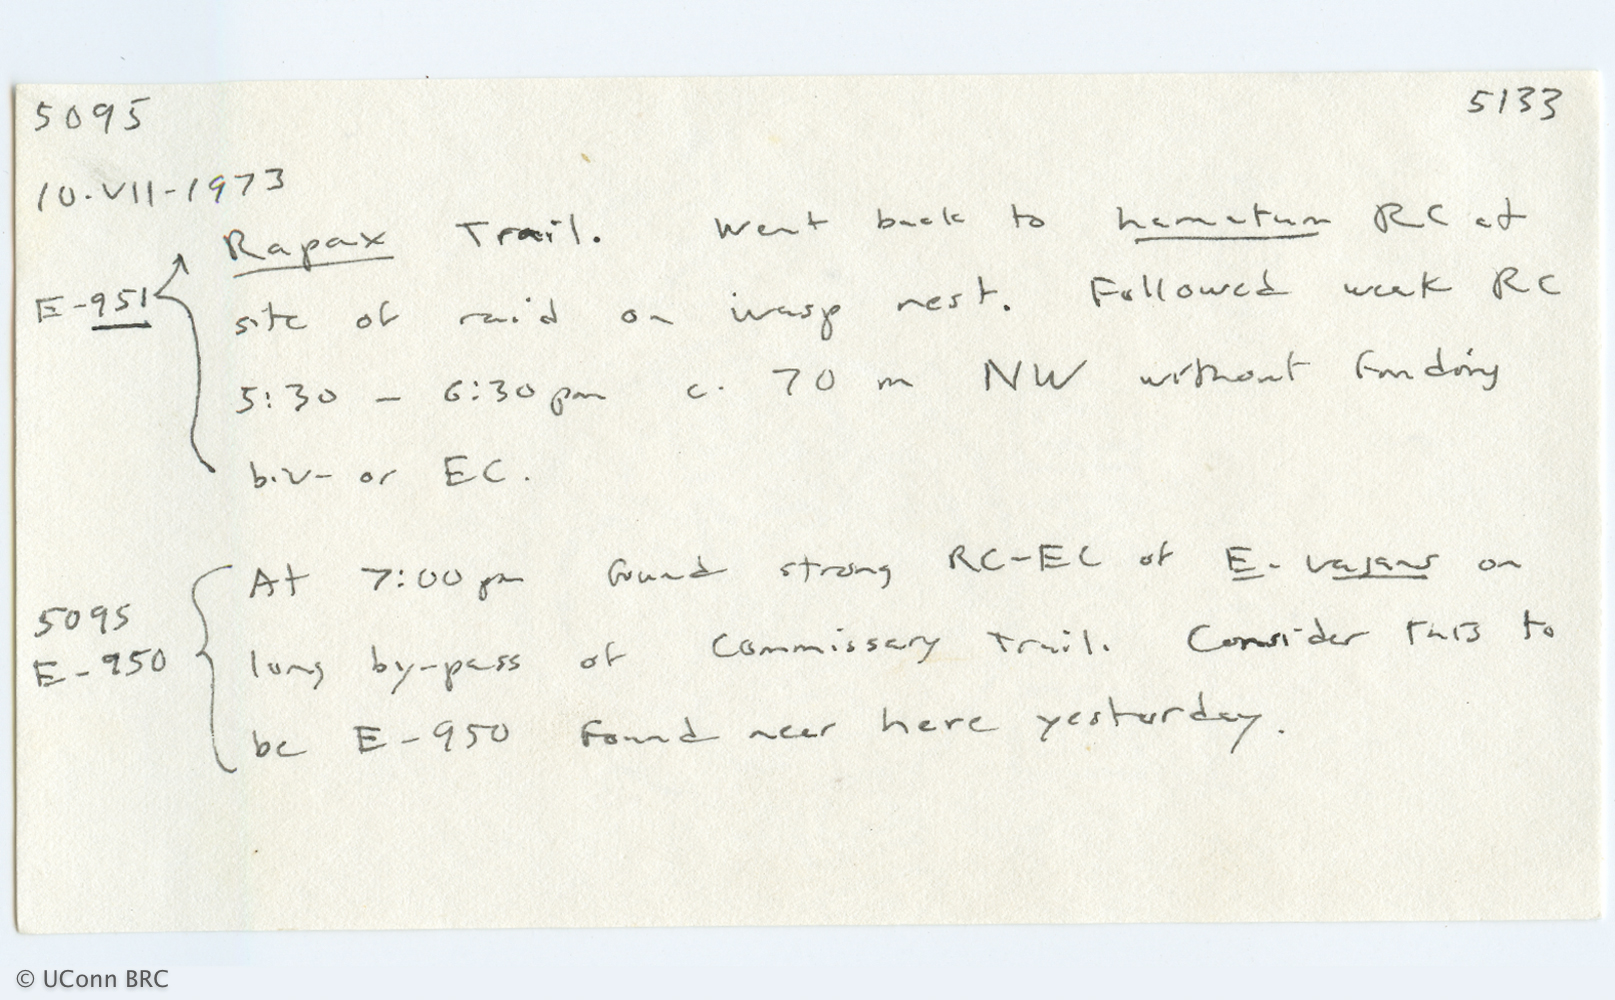 5095 5133
10.VII-1973
Rapax Trail. Went back to hamatum RC at
E-951 site of raid on wasp nest. Followed weak RC
5:30 - 6:30 pm c. 70 m NW without finding
biv- or EC.
At 7:00 pm found strong RC-EC of E. vagans on
5095
long by-pass of Commissary Trail. Consider this to
E-950
be E-950 found near here yesterday.
© UConn BRC